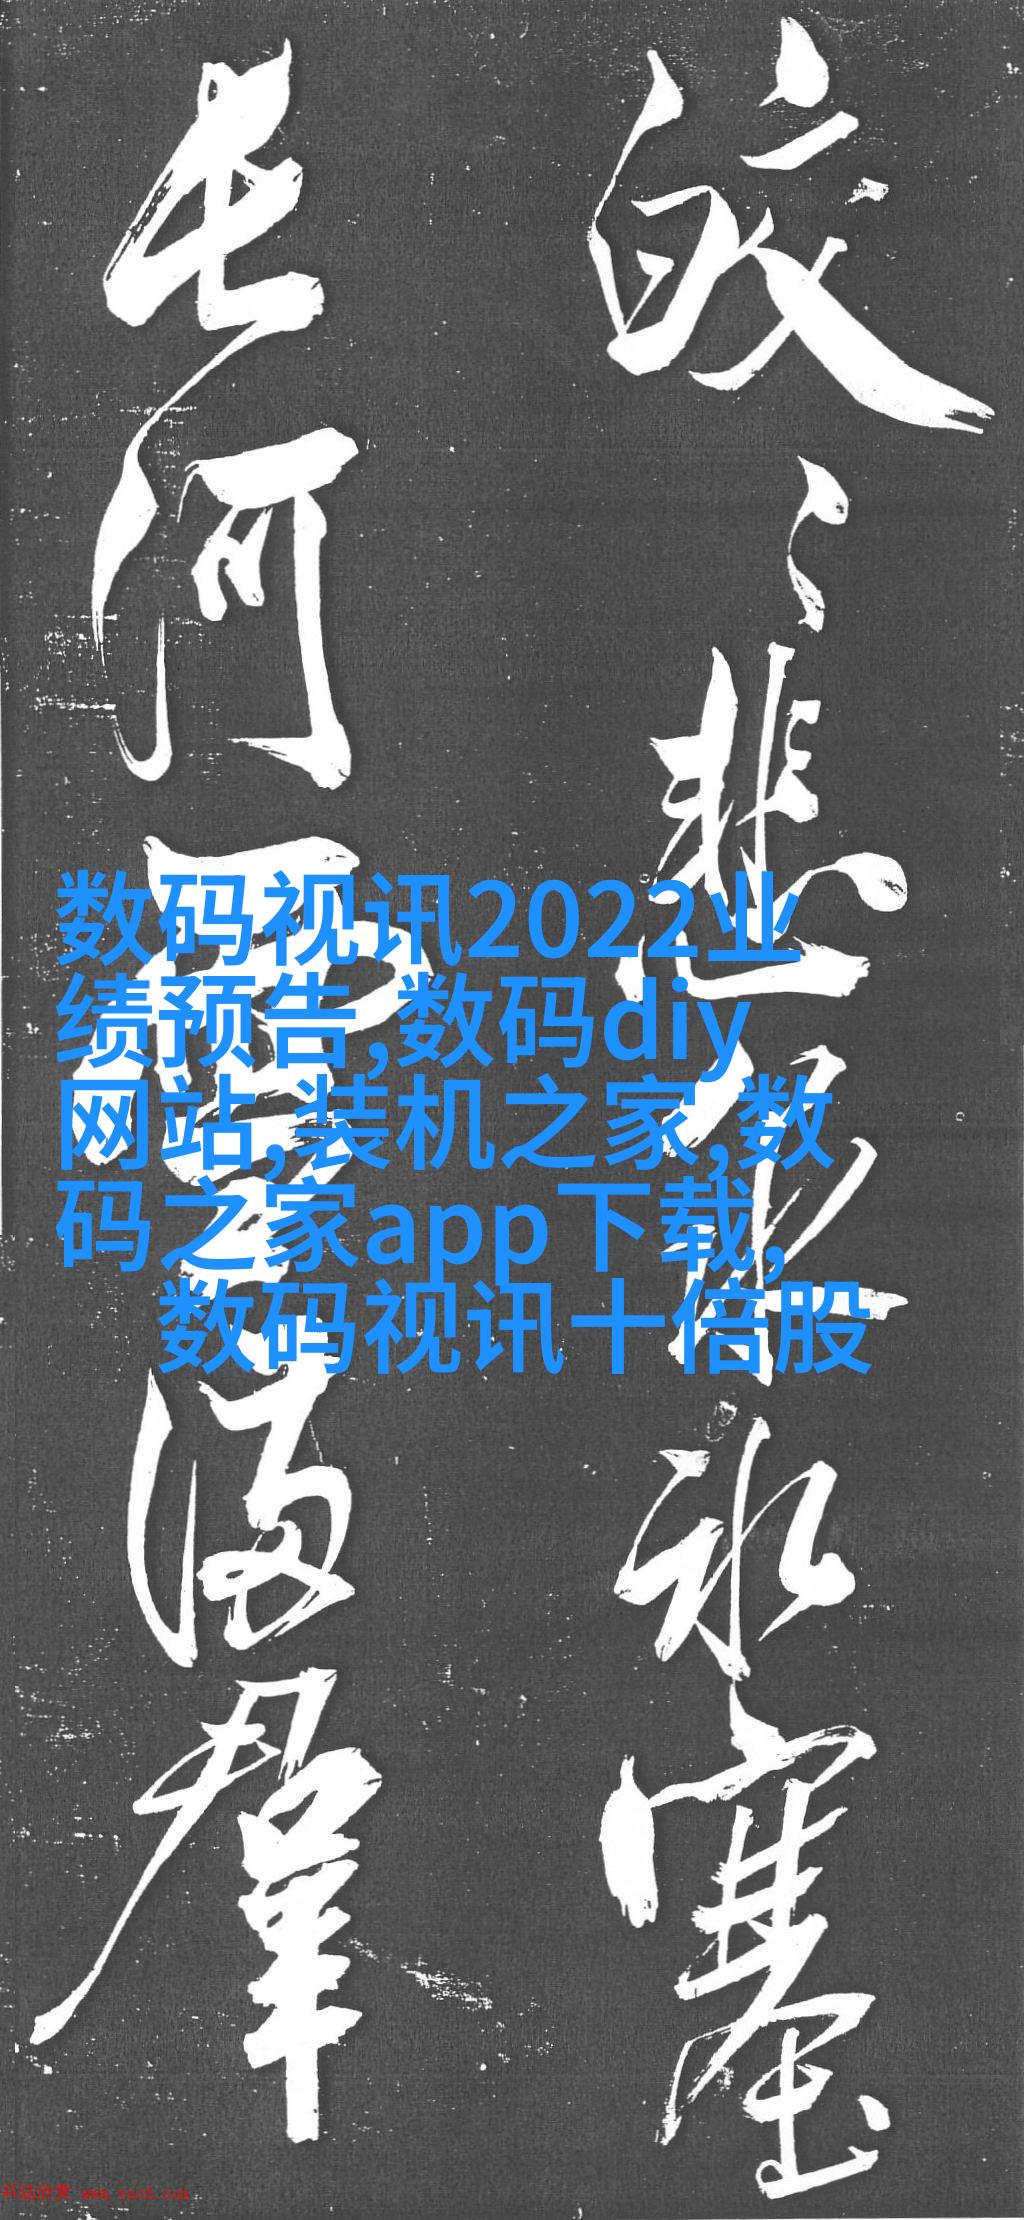 皎々悲泉氷塞
長河雪滿群
数码视讯2022业
绩预告,数码diy
网站,装机之家,数
码之家app下载,
数码视讯十倍股
书法欣赏 www.yac8.com